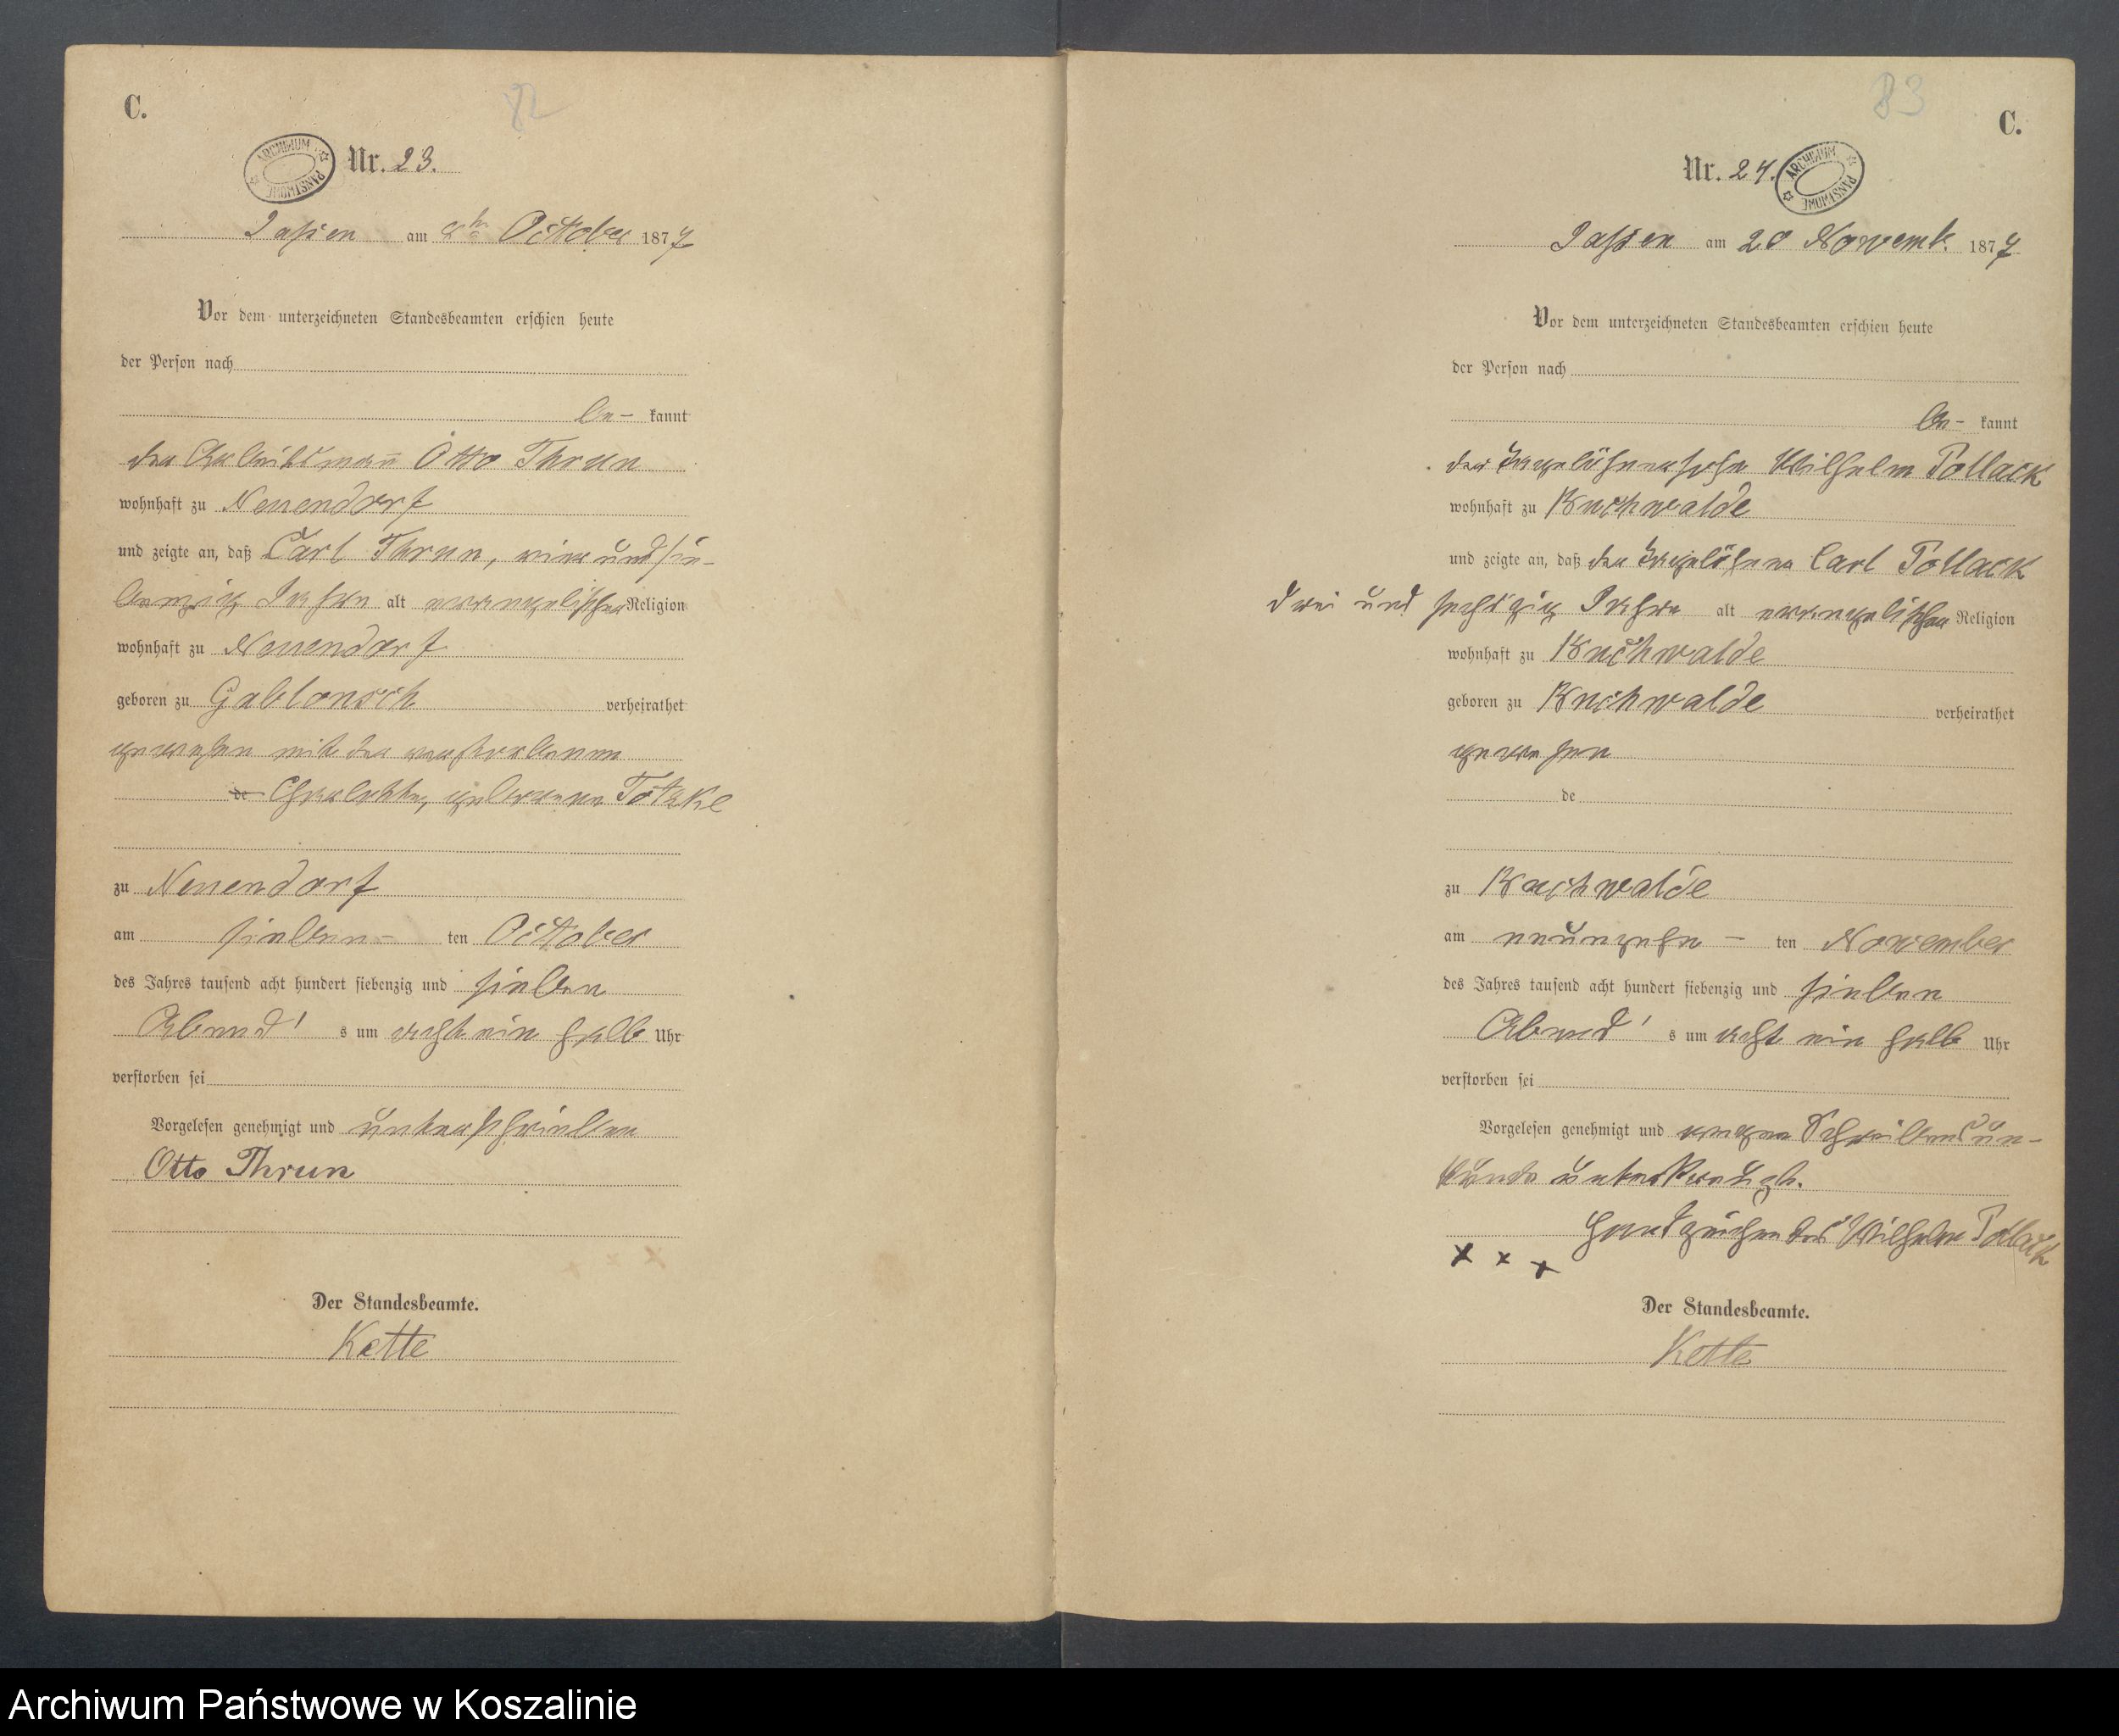 C.
82
ARCHIWUM PAŃSTWOWE
Nr. 23.
Jassen am 8ten October 1877
Vor dem unterzeichneten Standesbeamten erschien heute
der Person nach
be- kannt
der Arbeitsmann Otto Thrun
wohnhaft zu Neuendorf
und zeigte an, daß Carl Thrun, vier und sie-
benzig Jahre alt evangelischer Religion
wohnhaft zu Neuendorf
geboren zu Gablonsch verheirathet
gewesen mit der verstorbenen
de Charlotte, geborene Totzke
zu Neuendorf
am sieben- ten October
des Jahres tausend acht hundert siebenzig und sieben
Abend' s um acht ein halb Uhr
verstorben sei
Vorgelesen genehmigt und unterschrieben
Otto Thrun
Der Standesbeamte.
Kette
C.
83
Nr. 24.
ARCHIWUM PAŃSTWOWE
Jassen am 20 Novemb. 1877
Vor dem unterzeichneten Standesbeamten erschien heute
der Person nach
be- kannt
der Tagelöhnersohn Wilhelm Pollack
wohnhaft zu Buchwalde
und zeigte an, daß der Tagelöhner Carl Pollack
drei und sechszig Jahre alt evangelischer Religion
wohnhaft zu Buchwalde
geboren zu Buchwalde verheirathet
gewesen
de
zu Buchwalde
am neunzehn - ten November
des Jahres tausend acht hundert siebenzig und sieben
Abend' s um acht ein halb Uhr
verstorben sei
Vorgelesen genehmigt und wegen Schreibensun-
kunde unterkreuzt.
Handzeichen des Wilhelm Pollack
x x x
Der Standesbeamte.
Kette
Archiwum Państwowe w Koszalinie